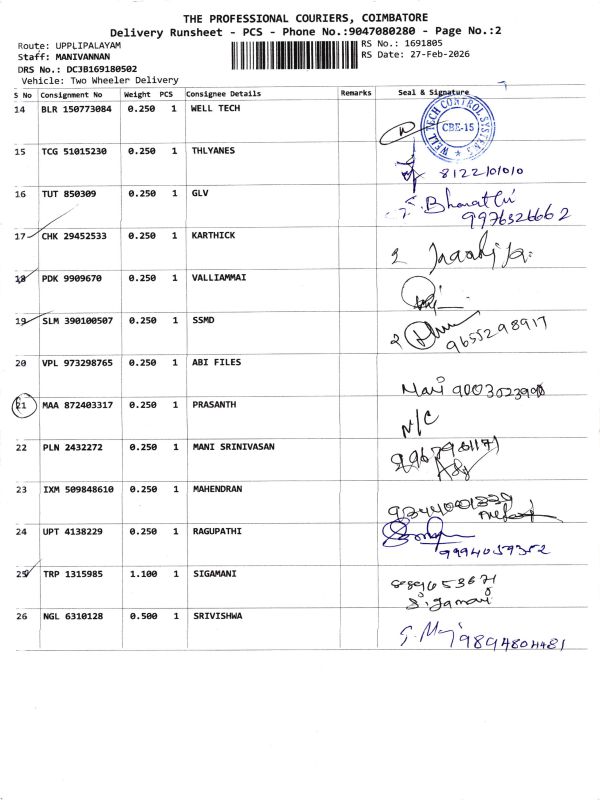 THE PROFESSIONAL COURIERS, COIMBATORE
Delivery Runsheet - PCS - Phone No.:9047080280 - Page No.:2
Route: UPPLIPALAYAM
Staff: MANIVANNAN
DRS No.: DCJB169180502
Vehicle: Two Wheeler Delivery
RS No.: 1691805
RS Date: 27-Feb-2026
S No Consignment No Weight PCS Consignee Details Remarks Seal & Signature
14 BLR 150773084 0.250 1 WELL TECH
WELL TECH CONTROL SYSTEMS
CBE-15
15 TCG 51015230 0.250 1 THLYANES
8122101010
16 TUT 850309 0.250 1 GLV
Bharathi
9976326662
17 CHK 29452533 0.250 1 KARTHICK
2
18 PDK 9909670 0.250 1 VALLIAMMAI
19 SLM 390100507 0.250 1 SSMD
2
9655298917
20 VPL 973298765 0.250 1 ABI FILES
Mari
21 MAA 872403317 0.250 1 PRASANTH
N/C
22 PLN 2432272 0.250 1 MANI SRINIVASAN
23 IXM 509848610 0.250 1 MAHENDRAN
24 UPT 4138229 0.250 1 RAGUPATHI
9994059352
25 TRP 1315985 1.100 1 SIGAMANI
26 NGL 6310128 0.500 1 SRIVISHWA
9894804481